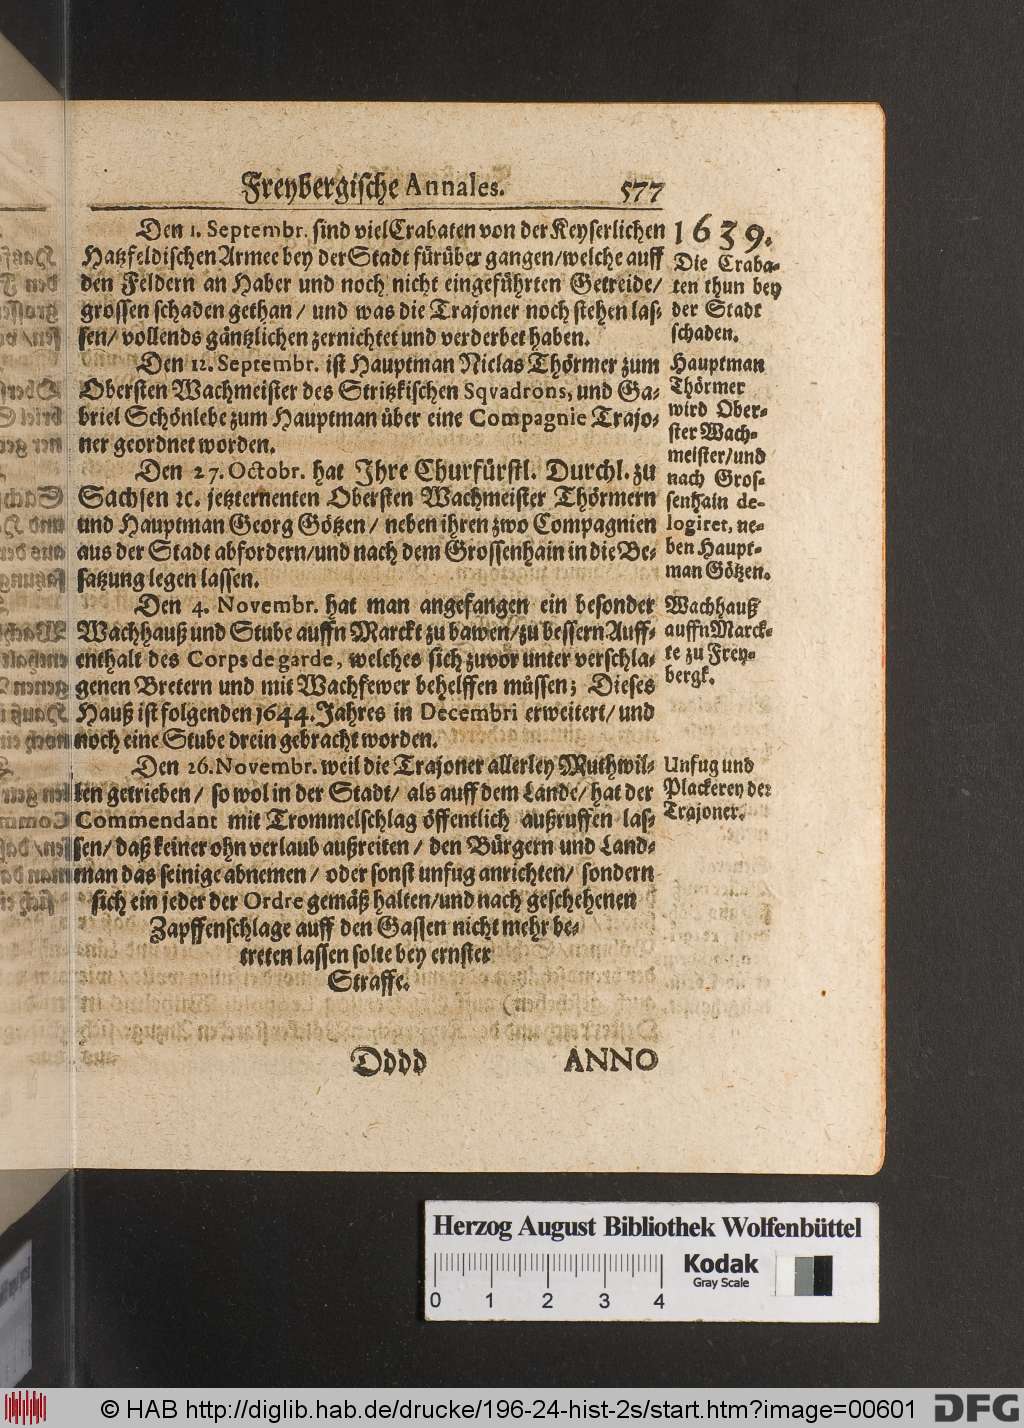 Freybergische Annales. 577
Den 1. Septembr. sind viel Crabaten von der Keyserlichen
Hatzfeldischen Armee bey der Stadt fürüber gangen/welche auff
den Feldern an Haber und noch nicht eingeführten Getreide/
grossen schaden gethan / und was die Trajoner noch stehen las-
sen/ vollends gäntzlichen zernichtet und verderbet haben.
Den 12. Septembr. ist Hauptman Niclas Thörmer zum
Obersten Wachmeister des Stritzkischen Sqvadrons, und Ga-
briel Schönlebe zum Hauptman über eine Compagnie Trajo-
ner geordnet worden.
Den 27. Octobr. hat Ihre Churfürstl. Durchl. zu
Sachsen ꝛc. jetzternenten Obersten Wachmeister Thörmern
und Hauptman Georg Götzen / neben ihren zwo Compagnien
aus der Stadt abfordern/und nach dem Grossenhain in die Be-
satzung legen lassen.
Den 4. Novembr. hat man angefangen ein besonder
Wachhauß und Stube auffn Marckt zu bawen/zu bessern Auff-
enthalt des Corps de garde, welches sich zuvor unter verschla-
genen Bretern und mit Wachfewer behelffen müssen; Dieses
Hauß ist folgenden 1644. Jahres in Decembri erweitert/ und
noch eine Stube drein gebracht worden.
Den 26. Novembr. weil die Trajoner allerley Muthwil-
len getrieben / so wol in der Stadt/ als auff dem Lande/ hat der
Commendant mit Trommelschlag öffentlich außruffen las-
sen/ daß keiner ohn verlaub außreiten / den Bürgern und Land-
man das seinige abnemen / oder sonst unfug anrichten/ sondern
sich ein jeder der Ordre gemäß halten/und nach geschehenen
Zapffenschlage auff den Gassen nicht mehr be-
treten lassen solte bey ernster
Straffe.
1639.
Die Craba-
ten thun bey
der Stadt
schaden.
Hauptman
Thörmer
wird Ober-
ster Wach-
meister/und
nach Gros-
senhain de-
logiret, ne-
ben Haupt-
man Götzen.
Wachhauß
auffn Marck-
te zu Frey-
bergk.
Unfug und
Plackerey der
Trajoner.
Dddd ANNO
Herzog August Bibliothek Wolfenbüttel
Kodak
Gray Scale
0 1 2 3 4
© HAB http://diglib.hab.de/drucke/196-24-hist-2s/start.htm?image=00601
DFG